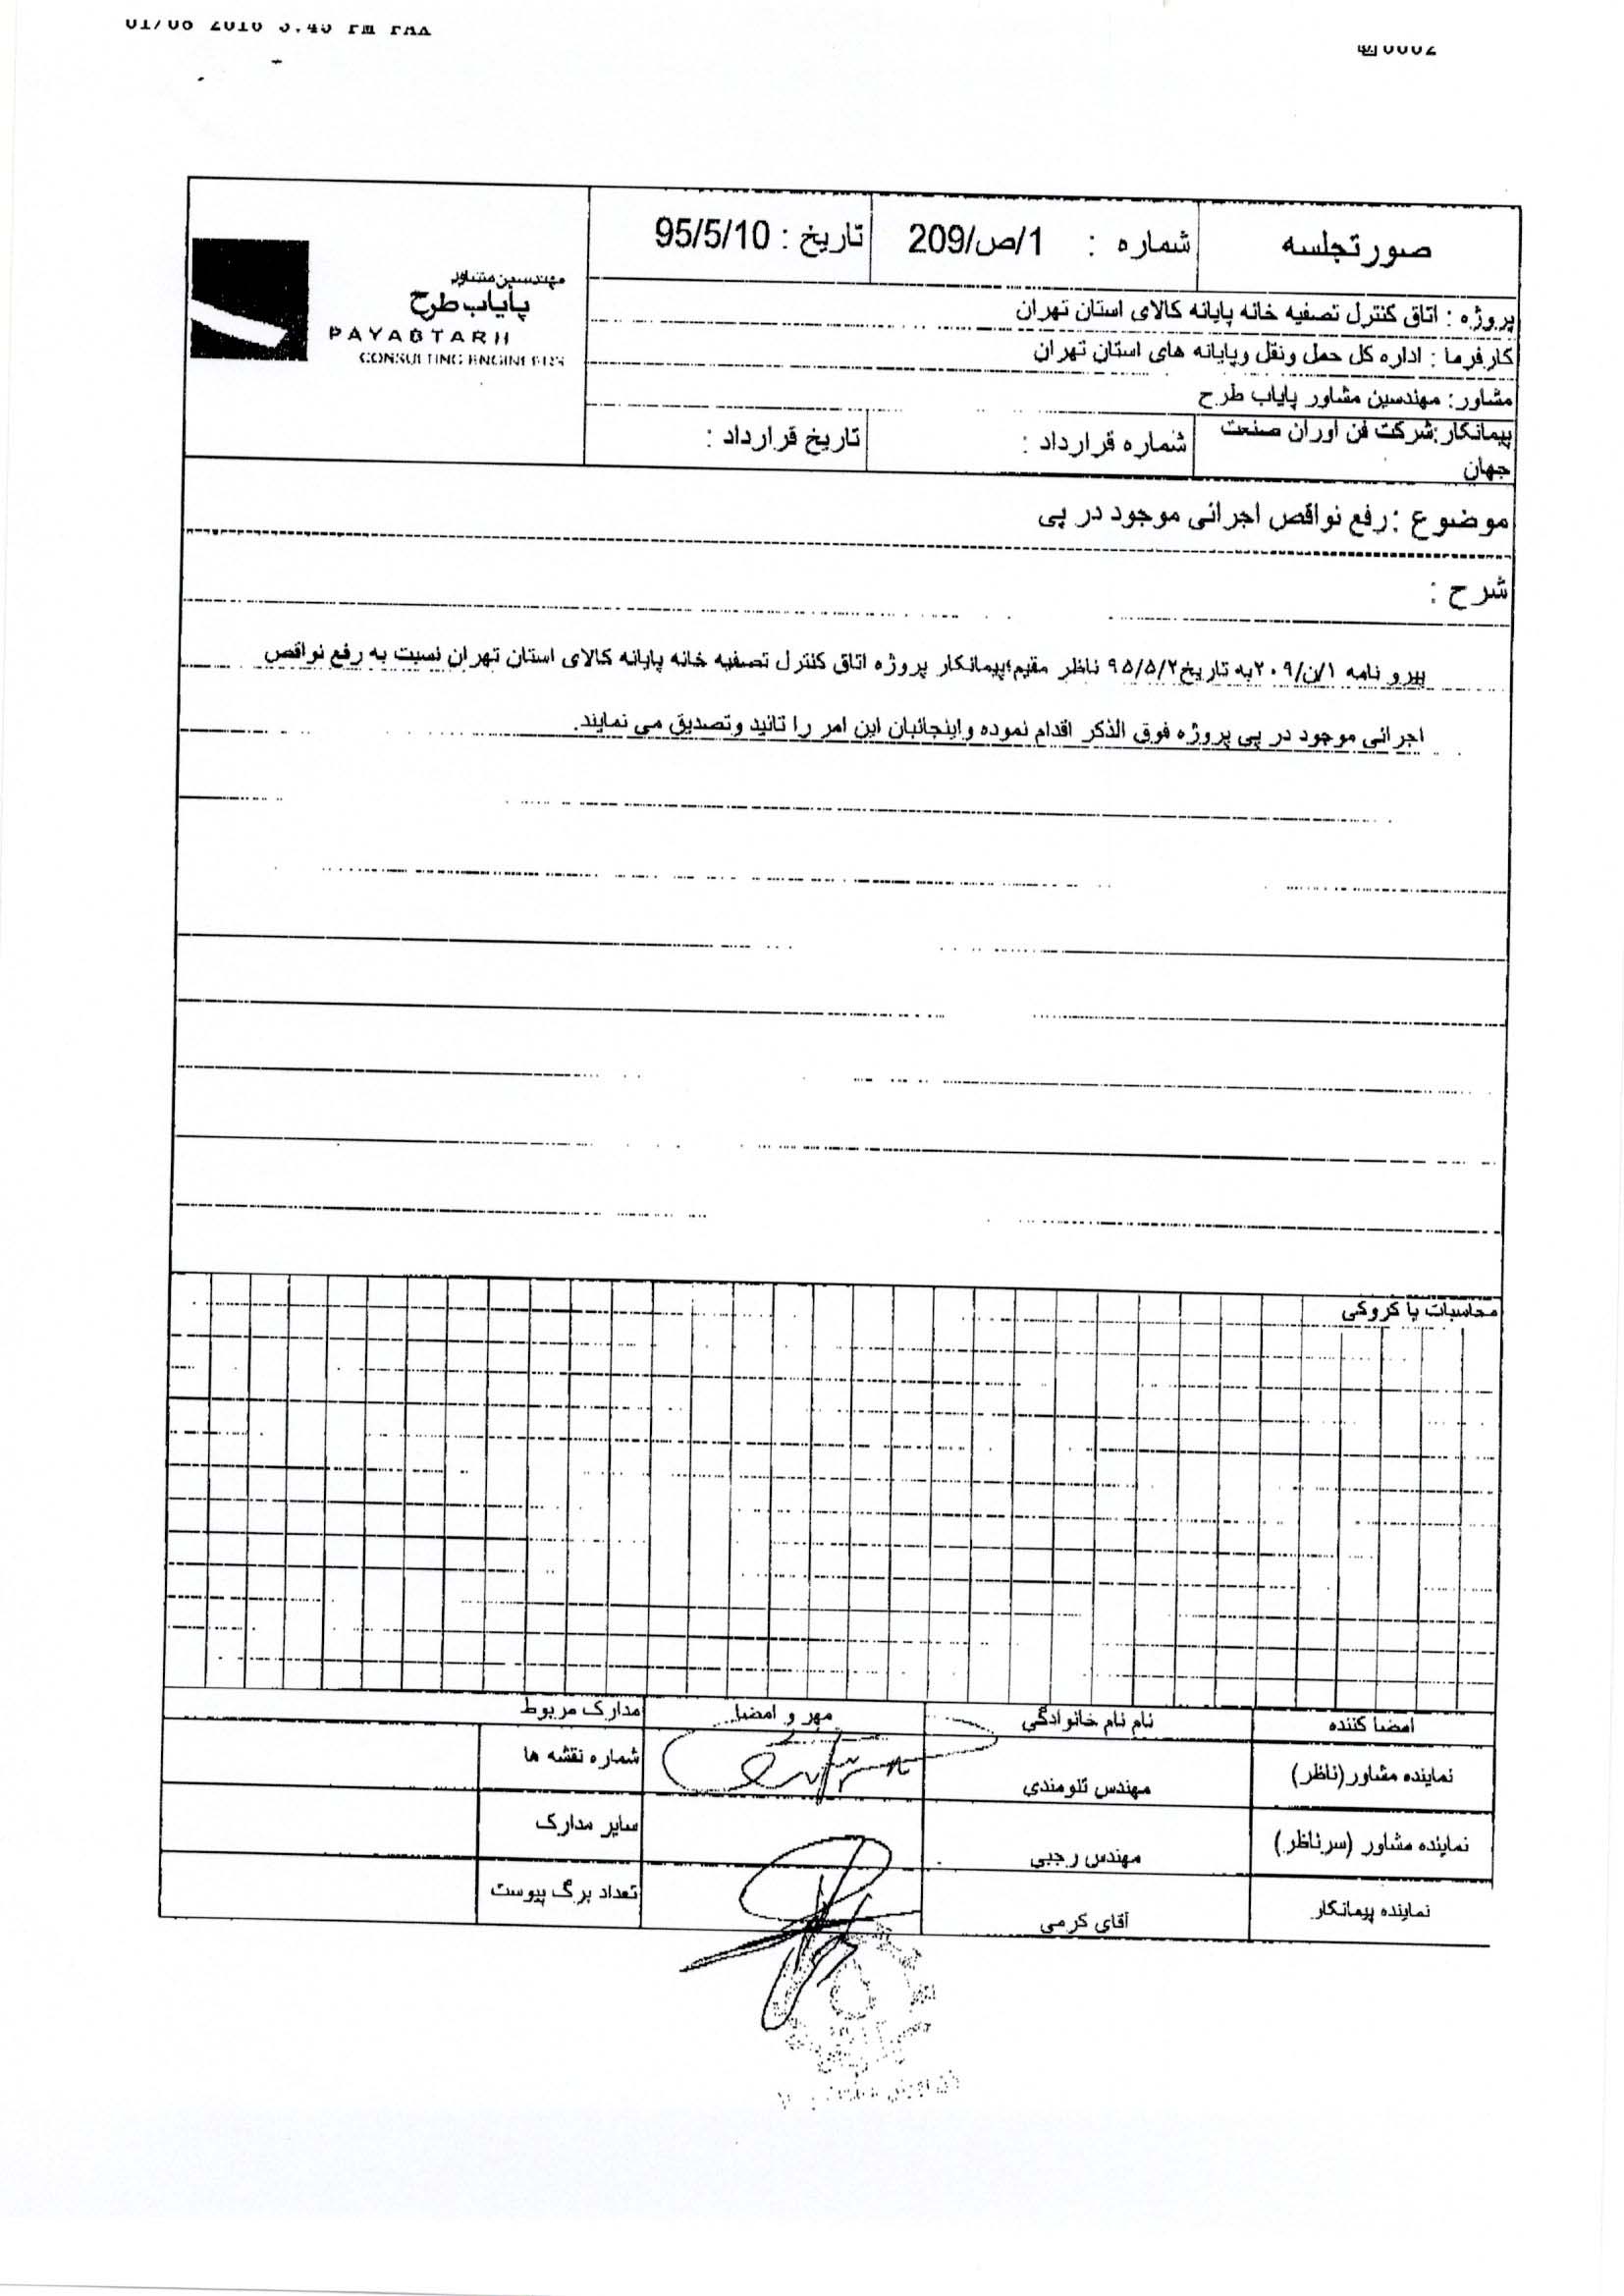 صورتجلسه
شماره : 209/ص/1
تاریخ : 95/5/10
مهندسین مشاور
پایاب طرح
PAYABTARH
CONSULTING ENGINEERS
پروژه : اتاق کنترل تصفیه خانه پایانه کالای استان تهران
کارفرما : اداره کل حمل ونقل وپایانه های استان تهران
مشاور: مهندسین مشاور پایاب طرح
پیمانکار:شرکت فن اوران صنعت
جهان
شماره قرارداد :
تاریخ قرارداد :
موضوع :رفع نواقص اجرائی موجود در پی
شرح :
پیرو نامه ۱/ن/۲۰۹به تاریخ۹۵/۵/۲ ناظر مقیم؛پیمانکار پروژه اتاق کنترل تصفیه خانه پایانه کالای استان تهران نسبت به رفع نواقص
اجرائی موجود در پی پروژه فوق الذکر اقدام نموده واینجانبان این امر را تائید وتصدیق می نمایند.
محاسبات یا کروکی
امضا کننده
نام نام خانوادگی
مهر و امضا
مدارک مربوط
نماینده مشاور(ناظر)
مهندس تلومندی
شماره نقشه ها
نماینده مشاور (سرناظر)
مهندس رجبی
سایر مدارک
نماینده پیمانکار
آقای کرمی
تعداد برگ پیوست